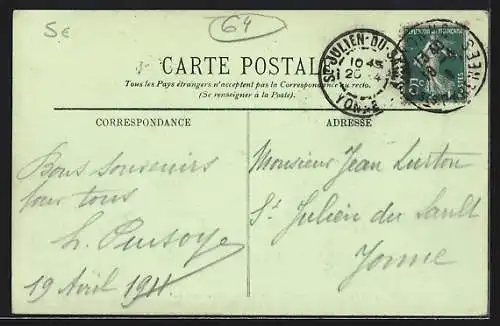 5€
64
CARTE POSTALE
Tous les Pays étrangers n'acceptent pas la Correspondance au recto.
(Se renseigner à la Poste).
ST JULIEN-DU-SAULT
10 45
20 -4
YONNE
5c
POSTES
CORRESPONDANCE
ADRESSE
Bons souvenirs
pour tous
19 Avril 1911
Monsieur Jean Lurton
St Julien du Sault
Yonne